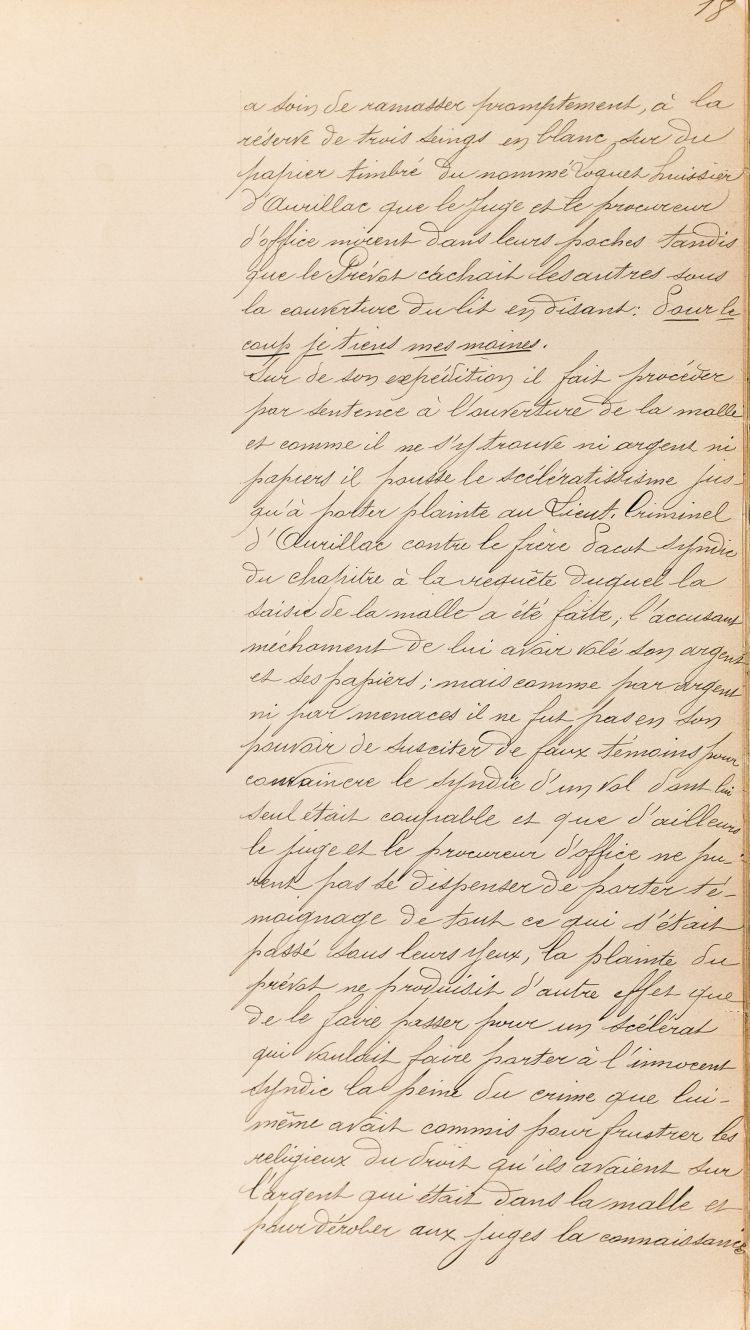 18
a soin de ramasser promptement, à la
réserve de trois seings en blanc sur du
papier timbré du nommé Loguet huissier
d'Aurillac que le Juge et le procureur
d'office mirent dans leurs poches tandis
que le Prévot cachait les autres sous
la couverture du lit en disant : Pour le
coup je tiens mes moines.
Sur de son expédition il fait procéder
par sentence à l'ouverture de la malle
et comme il ne s'y trouve ni argent ni
papiers il pousse le scélératissisme jus-
qu'à porter plainte au Lieut. Criminel
d'Aurillac contre le frère Pacot syndic
du chapitre à la requête duquel la
saisie de la malle a été faite, l'accusant
méchament de lui avoir volé son argent
et ses papiers ; mais comme par argent
ni par menaces il ne fut pas en son
pouvoir de susciter de faux témoins pour
convaincre le syndic d'un vol dont lui
seul était coupable et que d'ailleurs
le juge et le procureur d'office ne pu-
rent pas se dispenser de porter té-
moignage de tout ce qui s'était
passé sous leurs yeux, la plainte du
prévot ne produisit d'autre effet que
de le faire passer pour un scélérat
qui voulait faire porter à l'innocent
syndic la peine du crime que lui-
même avait commis pour frustrer les
religieux du droit qu'ils avaient sur
l'argent qui était dans la malle et
pour dérober aux juges la connaissance